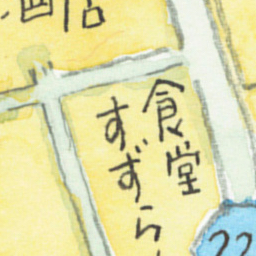 食堂
すずら
22